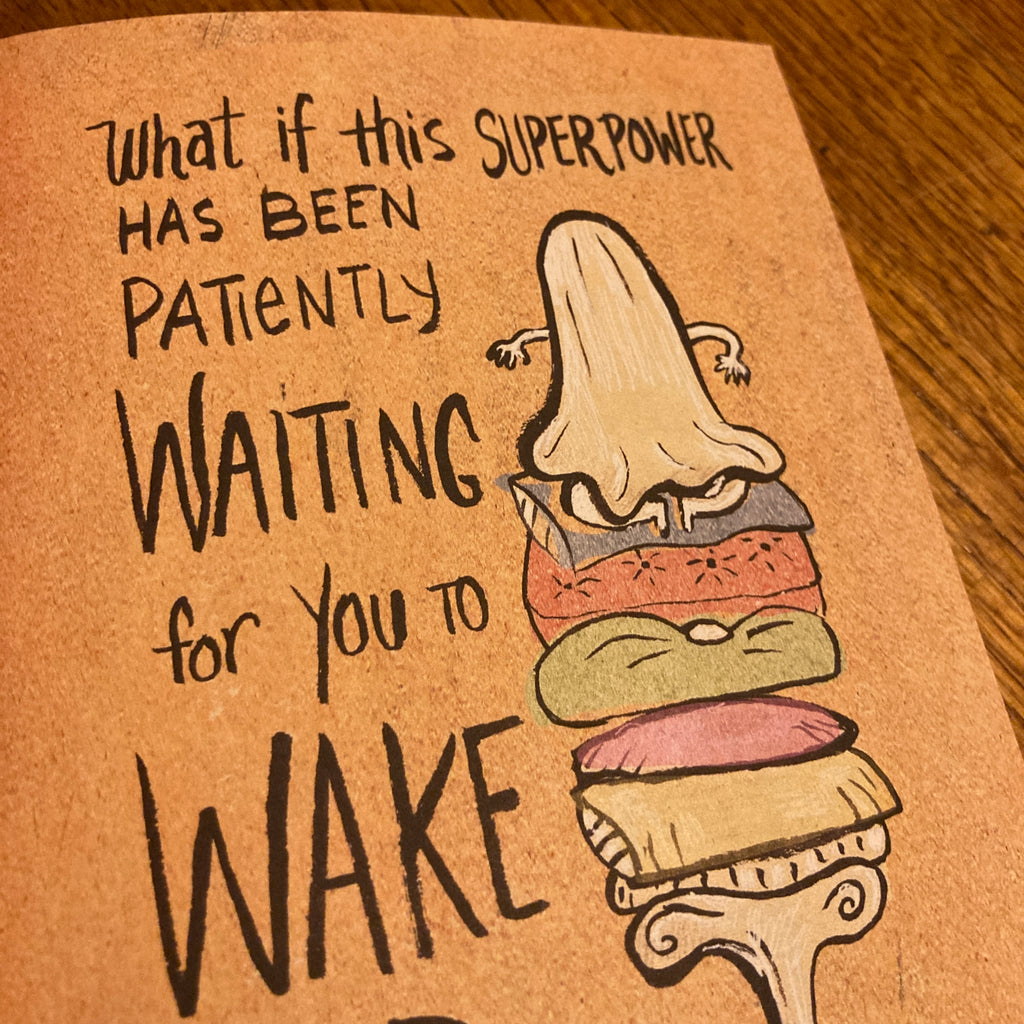 What if this SUPERPOWER
HAS BEEN
PATIENTLY
WAITING
for You TO
WAKE